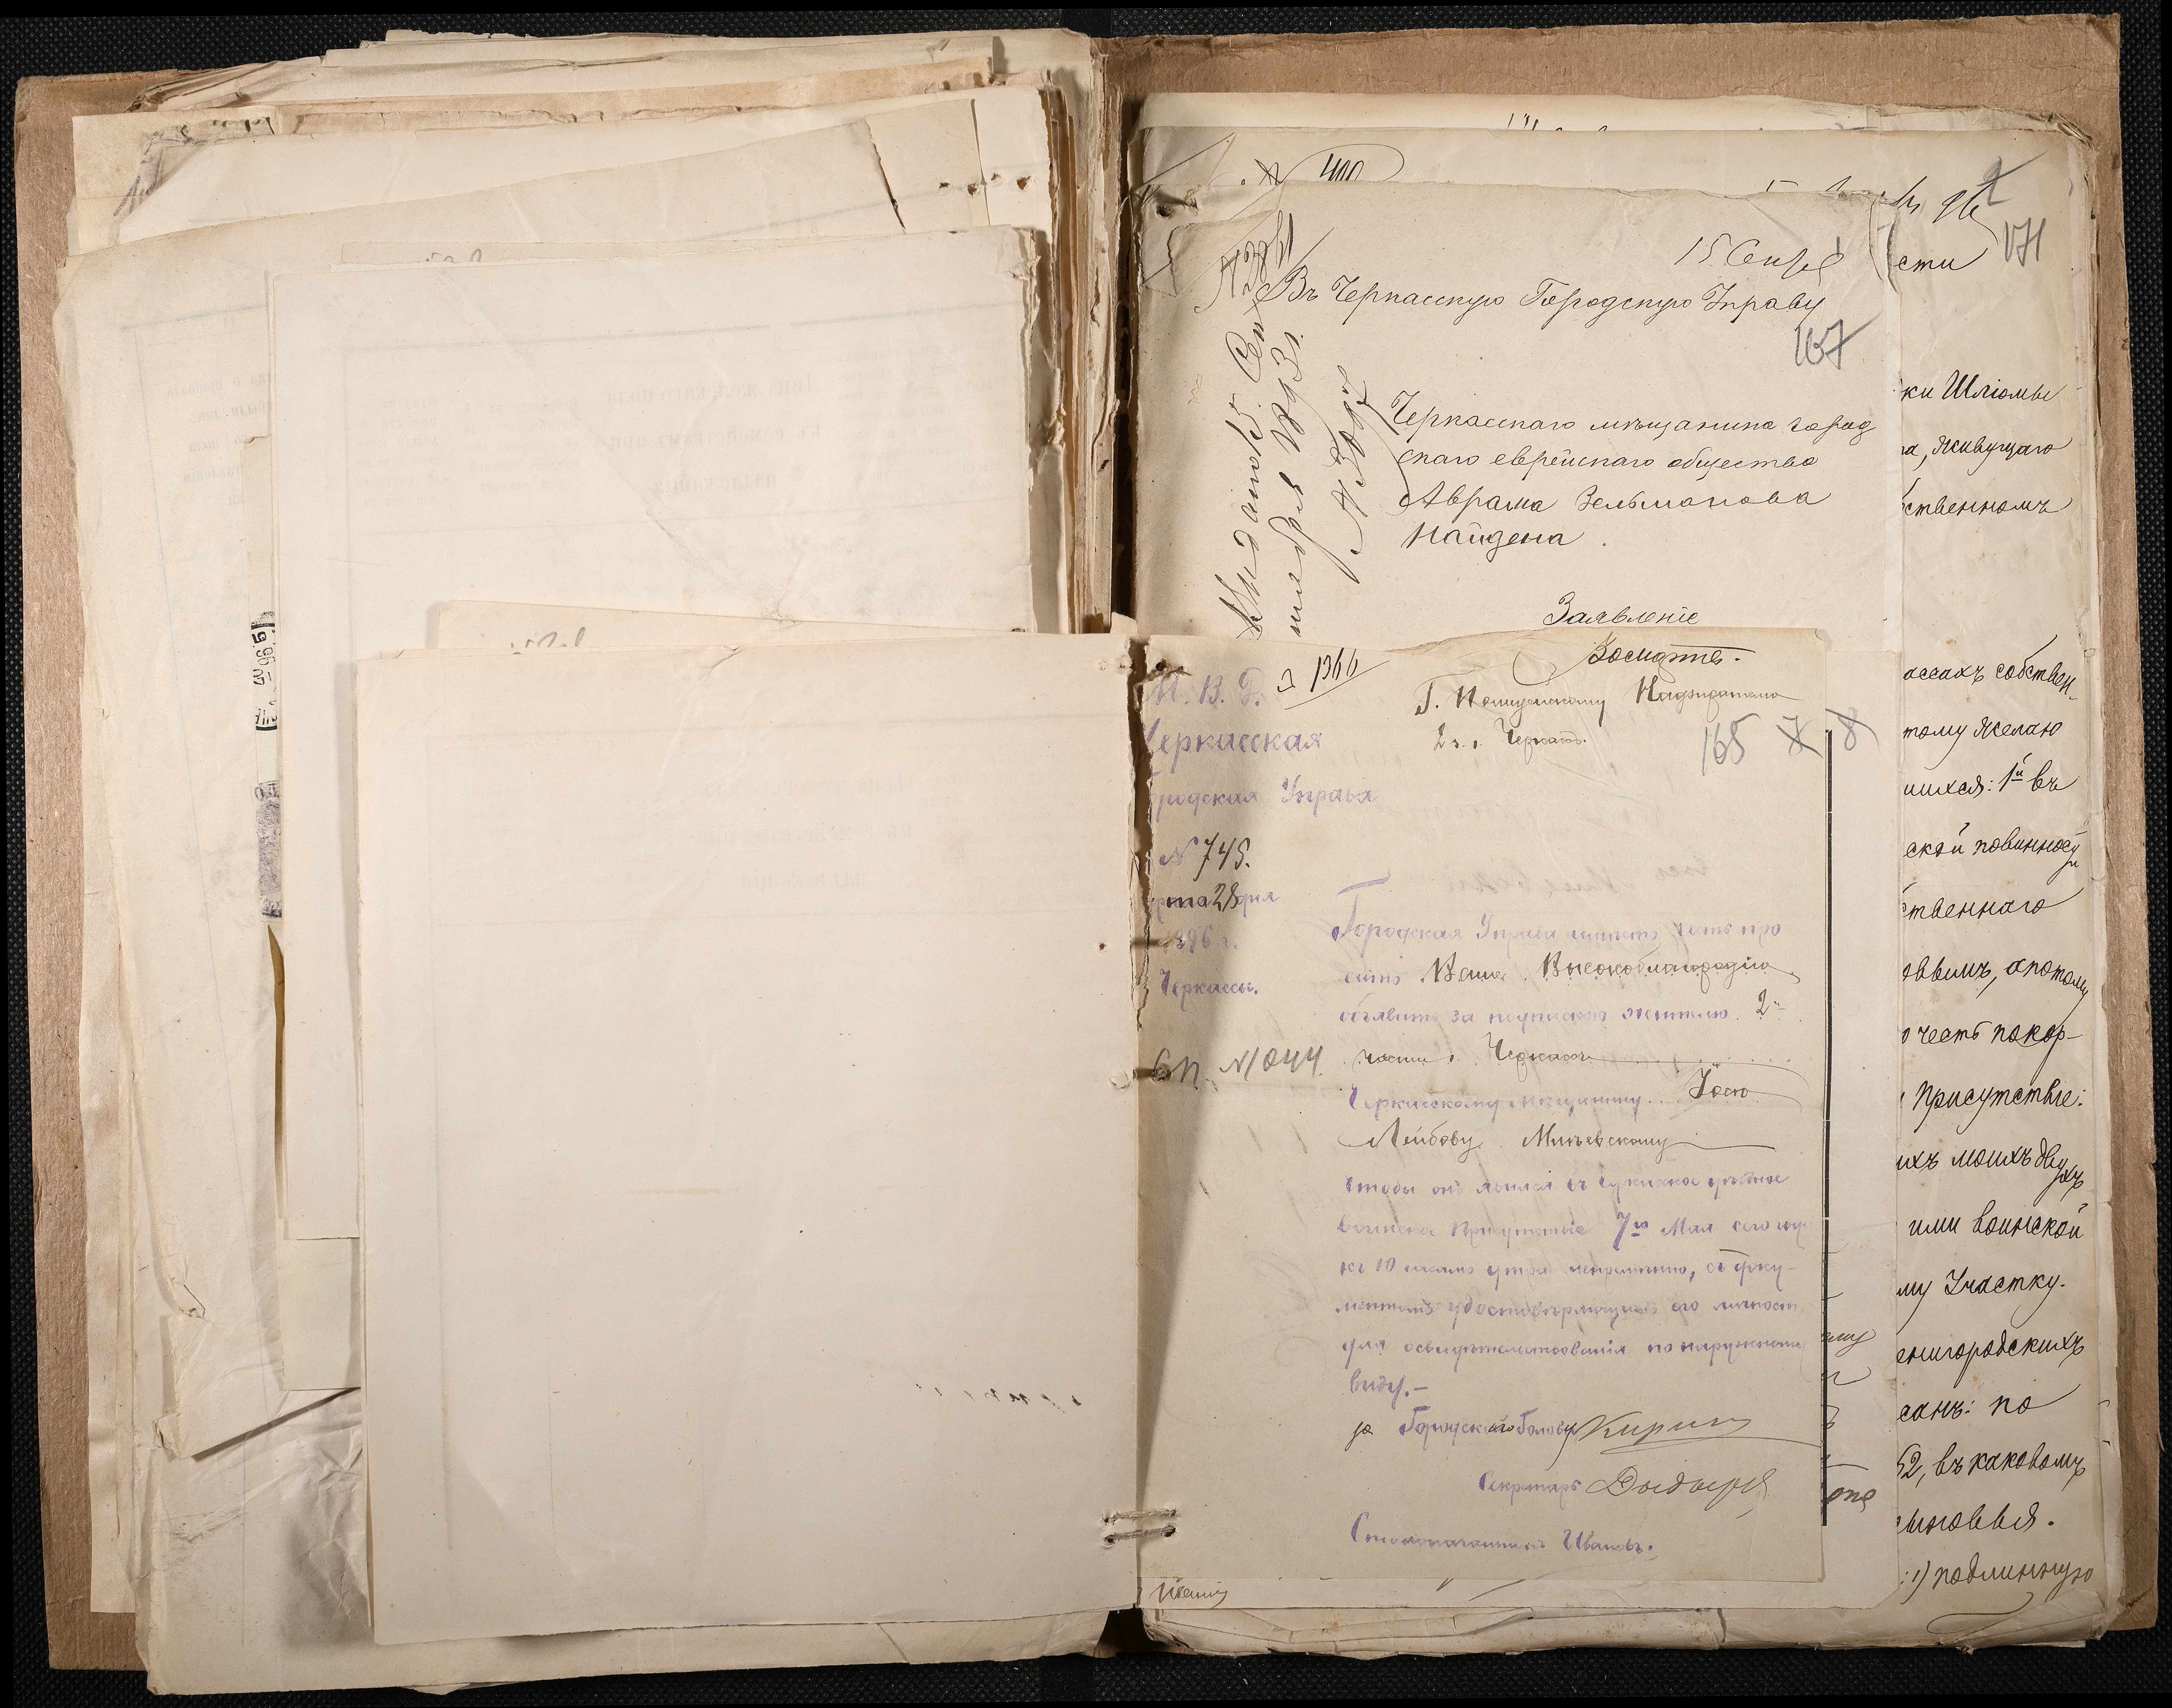 15 Сентяб
Въ Черкасскую Городскую Управу
167
Черкасскаго мѣщанина город
скаго еврейскаго общества
Аврама Зельманова
Найдена.
Заявленіе
171
сти
ки Шліомы
ра, живущаго
бственномъ
ассахъ собствен-
тому желаю
шихся: 1й въ
ской повинности
ственнаго
овымъ, а потому
честь покор-
Присутствіе:
ихъ моихъ двухъ
ими воинской
му Участку.
енигородскихъ
санъ: по
52, въ каковомъ
ыновья.
1) подлинную
1366
М. В. Д.
Черкасская
Городская Управа
№ 745.
Марта 28 дня
1896 г.
Черкассы.
№ 1044
Г. Полицейскому Надзирателю
2 ч. г. Черкассъ.
165 7 8
Городская Управа имѣетъ честь про
ситъ Ваше Высокоблагородіе
объявить за подпискою жителю 2й
части г. Черкассъ
Черкасскому мѣщанину Іосю
Лейбову Миневскому
чтобы онъ явился въ Черкасское уѣздное
воинское Присутствіе 7го Мая сего года
къ 10 часамъ утра непремѣнно, съ доку-
ментомъ удостовѣряющимъ его личность
для освидѣтельствованія по наружному
виду.-
за Городского Голову
Секретарь
Столоначальникъ Ивановъ.